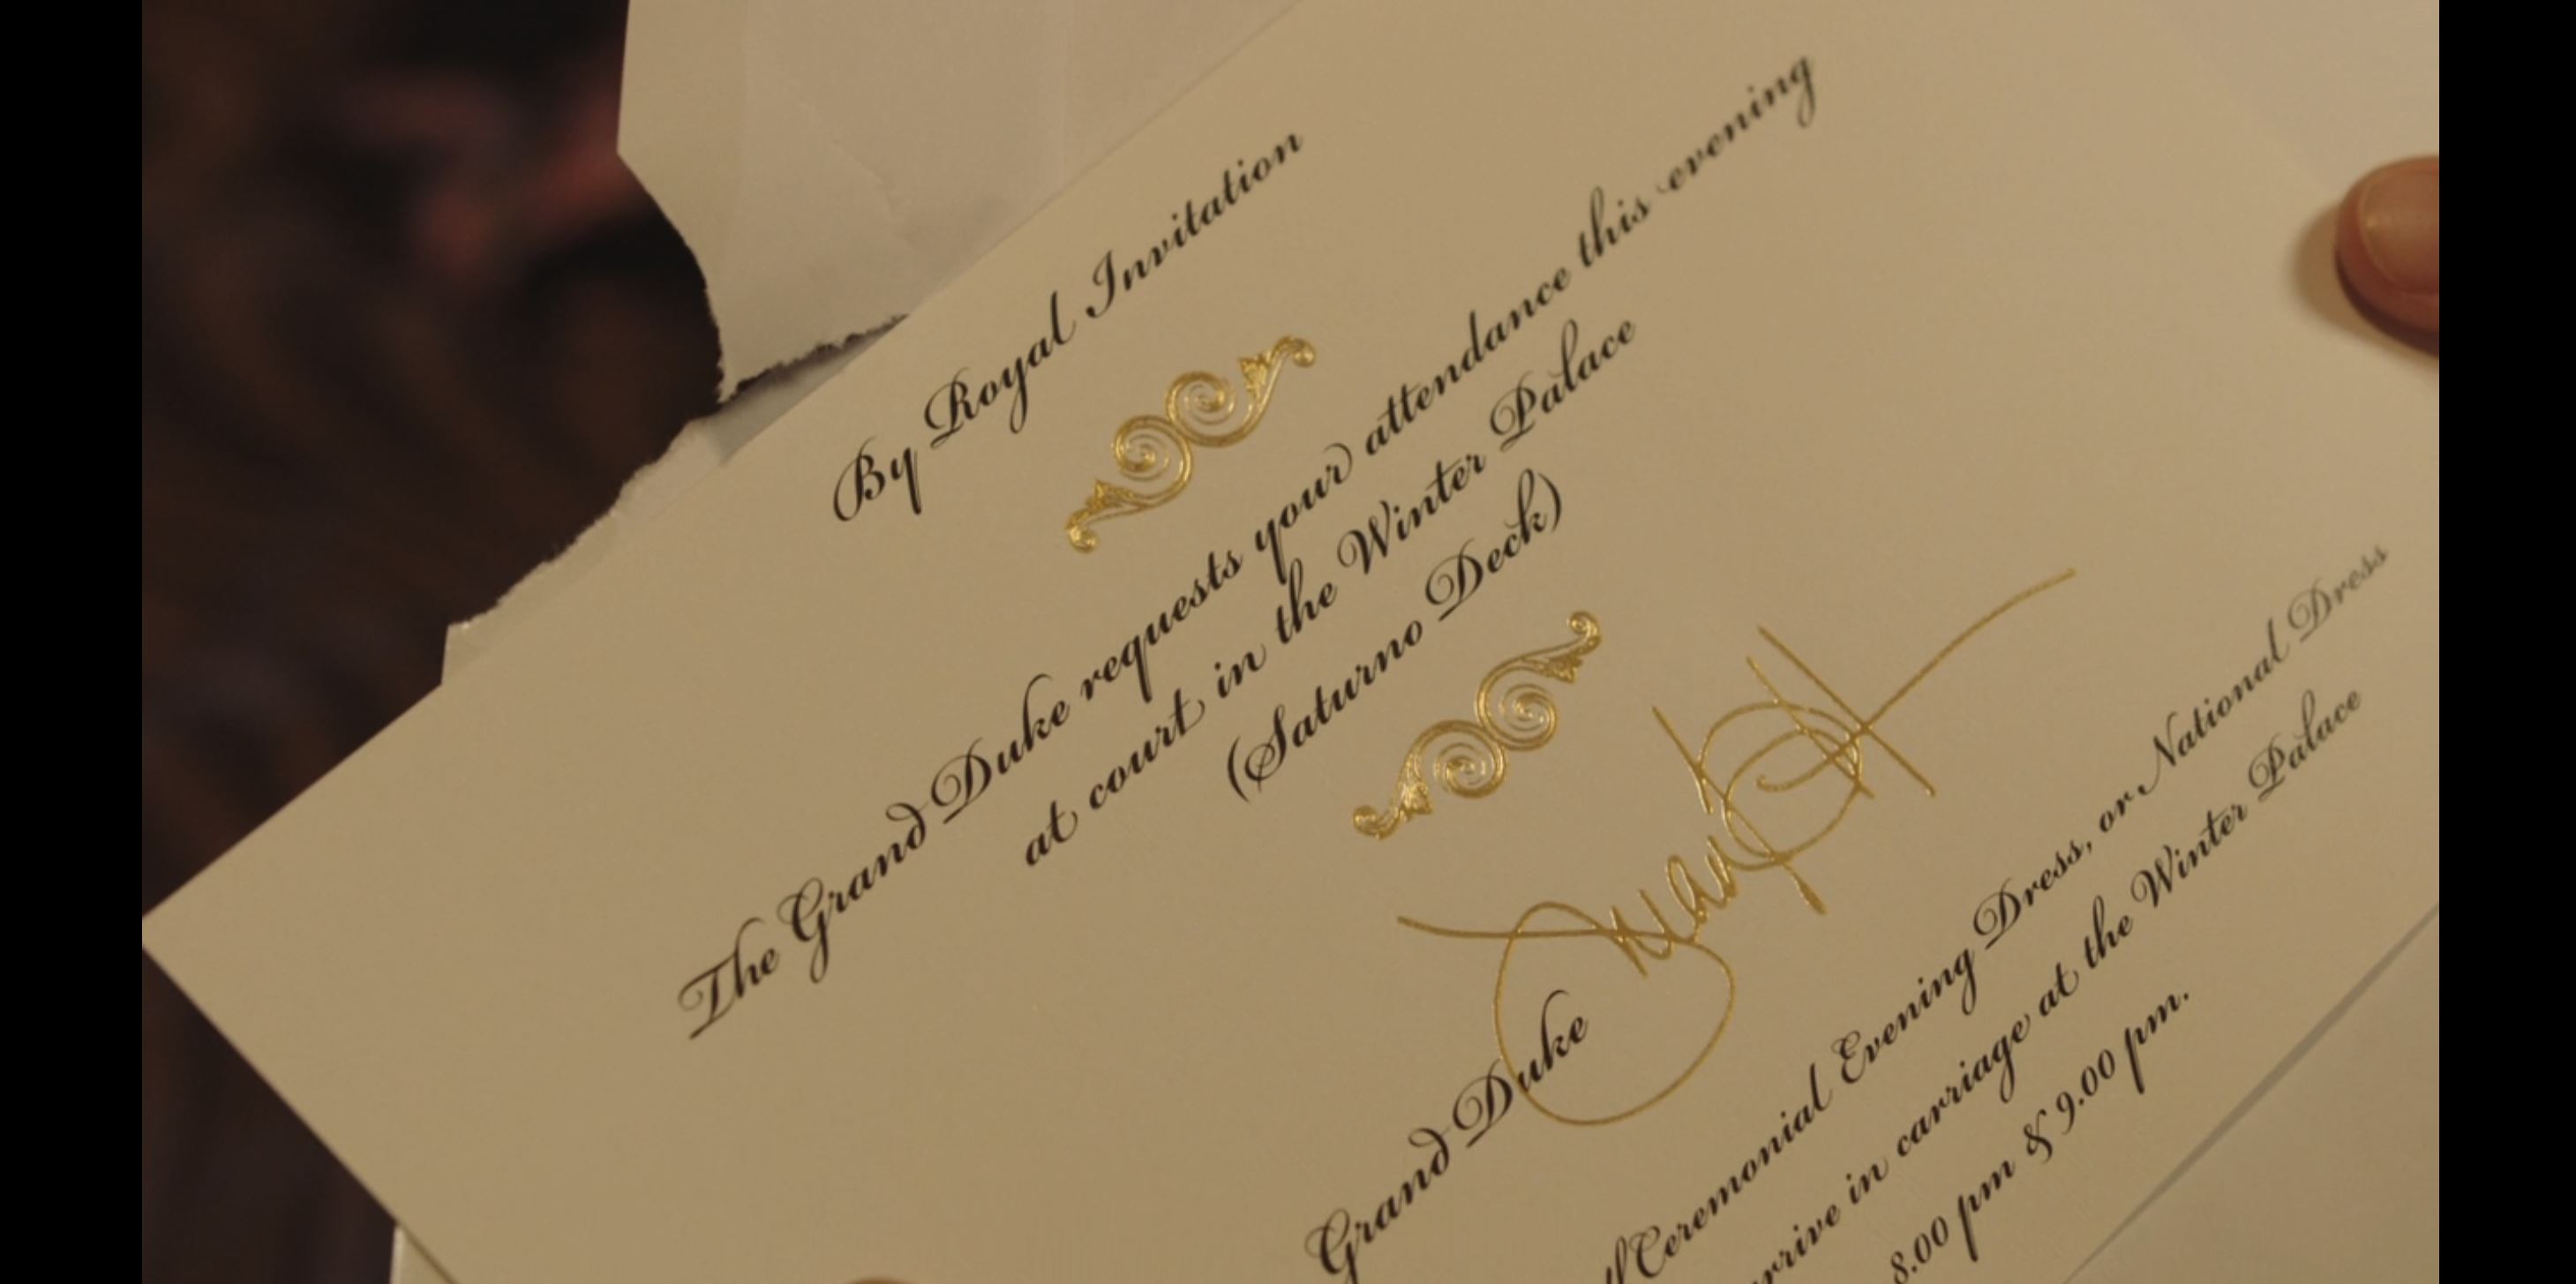 By Royal Invitation
The Grand Duke requests your attendance this evening
at court in the Winter Palace
(Saturno Deck)
Grand Duke
Ceremonial Evening Dress, or National Dress
in carriage at the Winter Palace
8.00 pm & 9.00 pm.